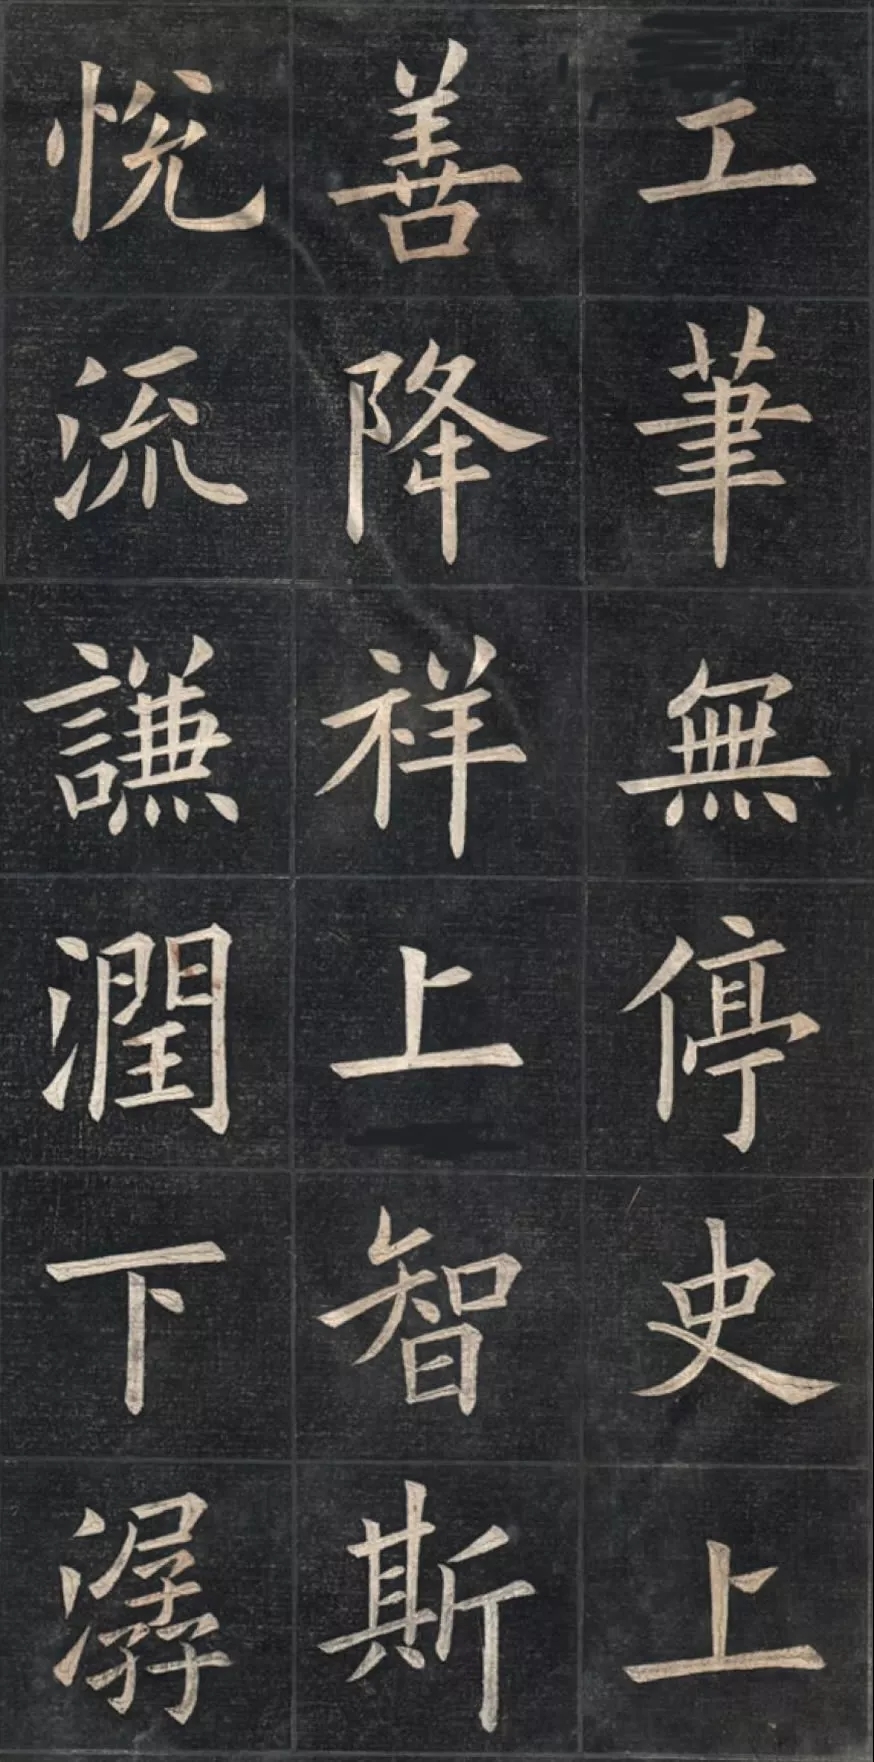 工筆無停史上
善降祥上智斯
悦流謙潤下潺